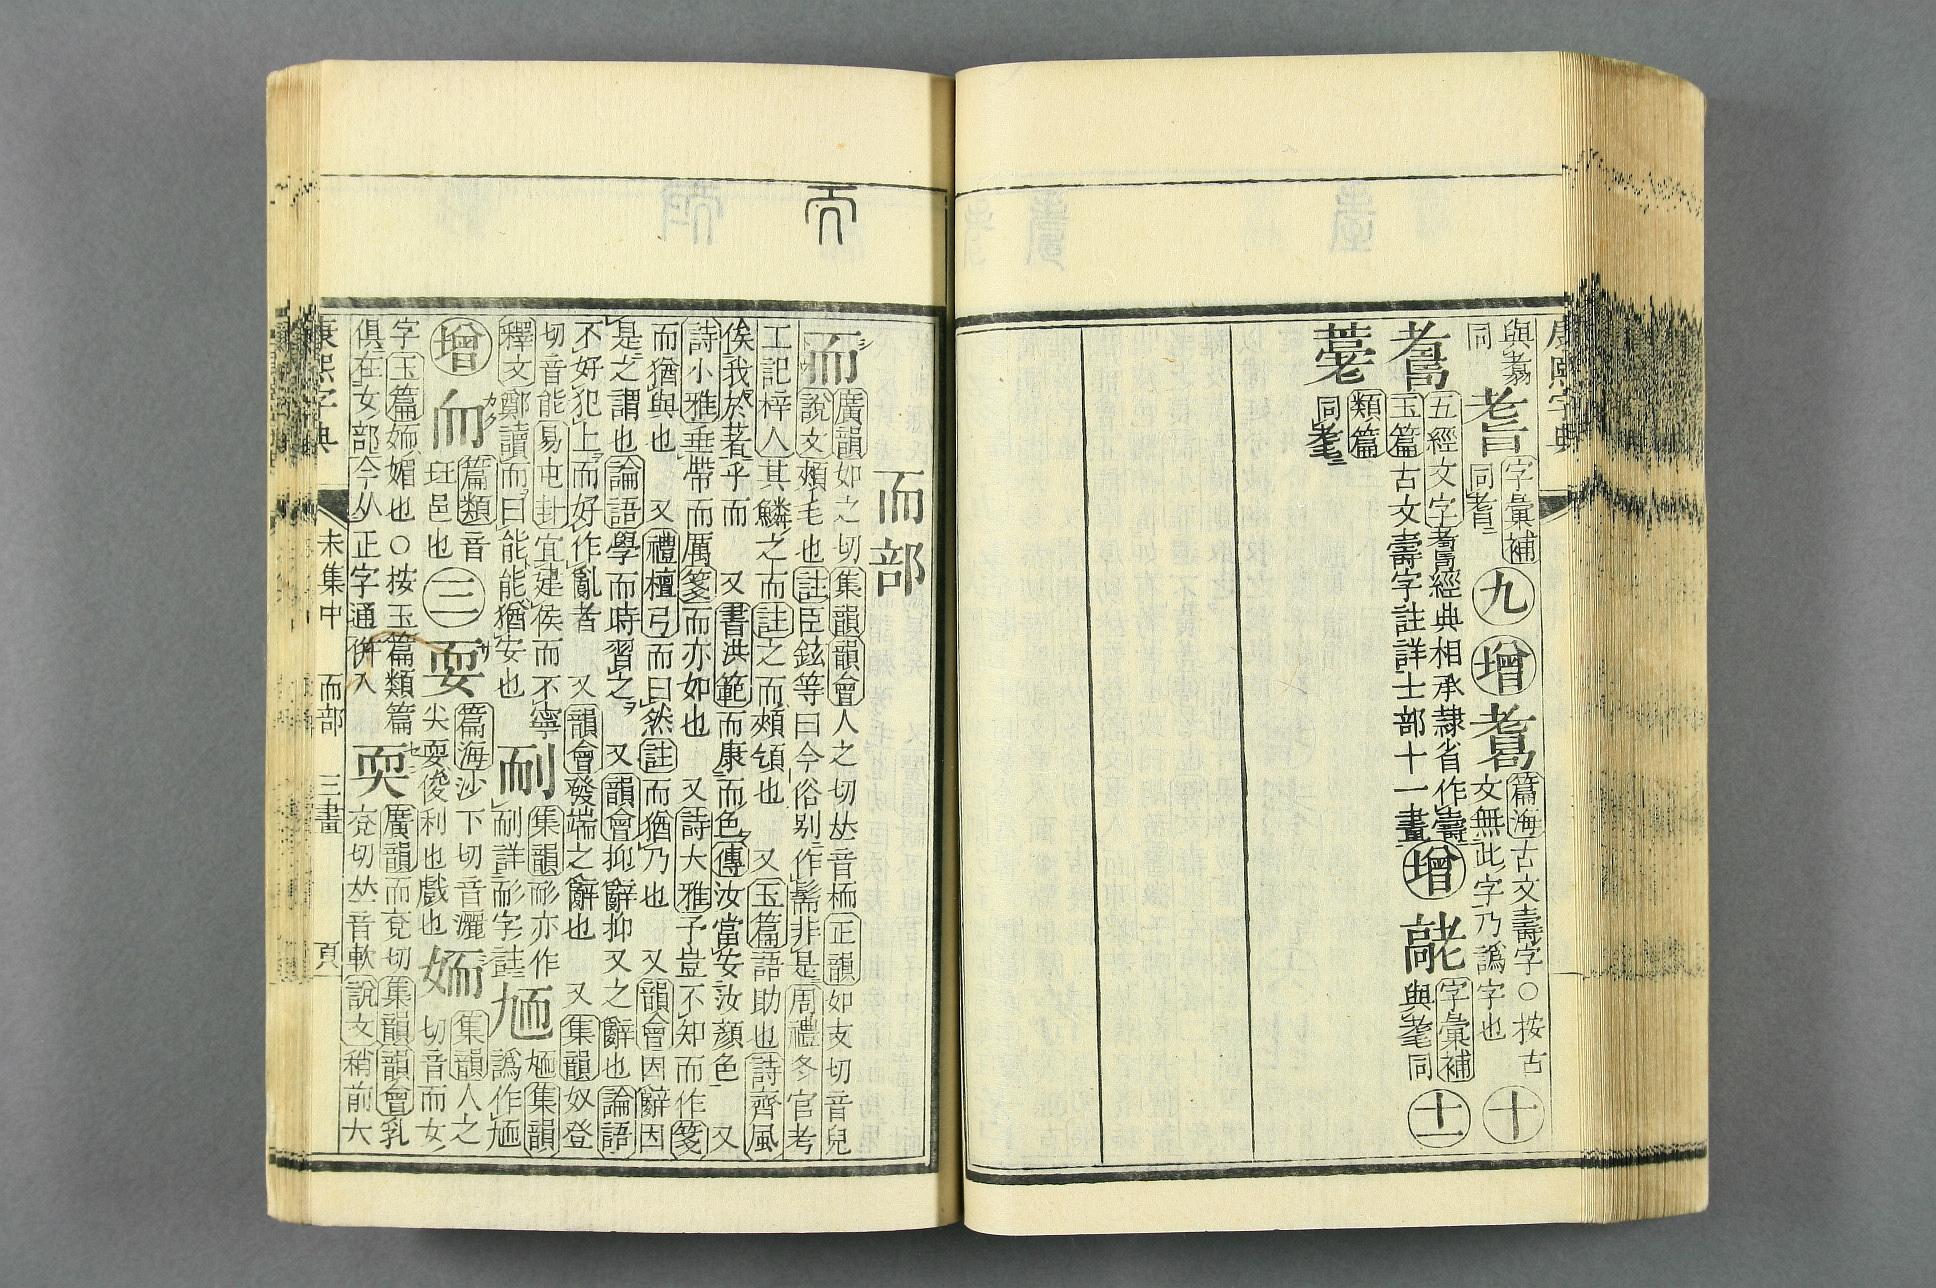 康熙字典
與耋
同
耆
字彙補
同耆
九
增
篇海古文壽字○按古
文無此字乃譌字也
十
五經文字耆經典相承隸省作壽
玉篇古文壽字註詳士部十一畫
增
字彙補
與耄同
十一
類篇
同耄
而部
而
廣韻如之切集韻韻會人之切𠀤音栭正韻如支切音兒
說文頰毛也註臣鉉等曰今俗別作髵非是周禮冬官考
工記梓人其鱗之而註之而頰頷也 又玉篇語助也詩齊風
俟我於著乎而 又書洪範而康而色傳汝當安汝顏色 又
詩小雅垂帶而厲箋而亦如也 又詩大雅予豈不知而作箋
而猶與也 又禮檀弓而曰然註而猶乃也 又韻會因辭因
是之謂也論語學而時習之 又韻會抑辭抑又之辭也論語
不好犯上而好作亂者 又韻會發端之辭也 又集韻奴登
切音能易屯卦宜建侯而不寧
釋文鄭讀而曰能能猶安也
耐
集韻耏亦作
耐詳耏字註
𡯖
集韻
譌作
增
篇類音
班邑也
三
耍
篇海沙下切音灑
尖耍俊利也戲也
㛅
集韻人之
切音而女
字玉篇㛅媚也○按玉篇類篇
俱在女部今从正字通倂入
耎
廣韻而兗切集韻韻會乳
兗切𠀤音軟說文稍前大
康熙字典
未集中
而部
三畫
頁